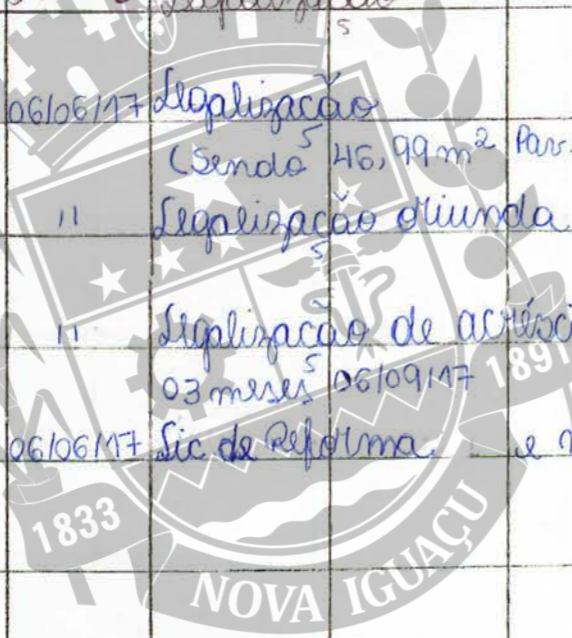 Legalização
06/06/17 Legalização
(Sendo 46,99 m² Pav.
" Legalização oriunda
" Legalização de acrésci
03 meses 06/09/17
06/06/17 Lic de Reforma e
1891
1833
NOVA IGUAÇU